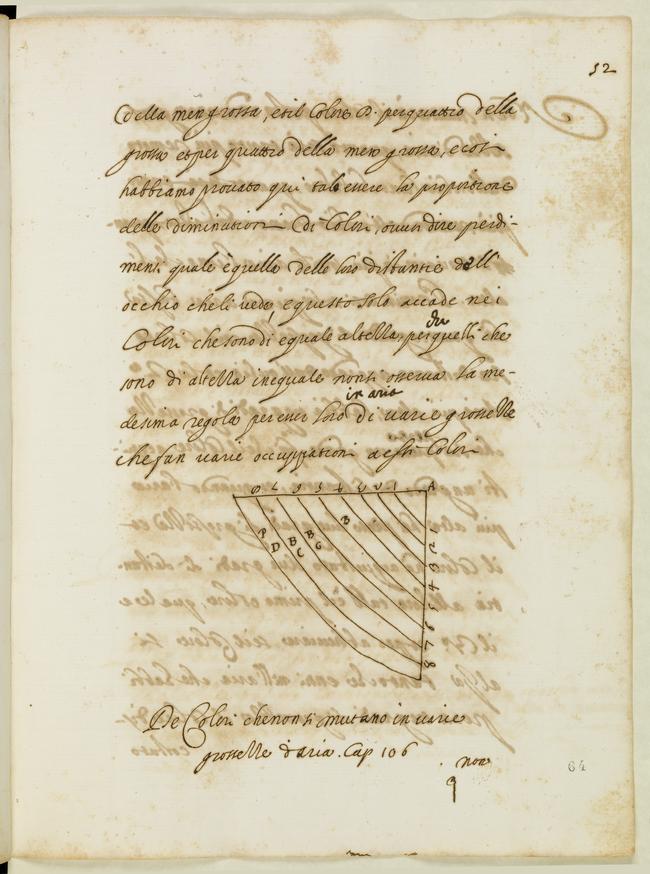 52
C della men grossa, et il Colore D. per quattro della
grossa et per quattro della men grossa, e cosi
habbiamo provato qui tale essere la proportione
delle diminutioni di Colori, o uuoi dire perdi-
menti quale è quella delle loro distantie dall'
occhio che li uede, e questo solo accade nei
Colori che sono di equale altezza, per che quelli che
sono di altezza inequale non si osserua la me-
in aria
desima regola per esser loro di uarie grossezze
che fan uarie occupationi a essi Colori
8 7 6 5 4 3 2 1 A
P D B C B G B
2
3
4
5
6
7
8
De Colori che non si mutano in uarie
grossezze d'aria. Cap 106
non
9
64